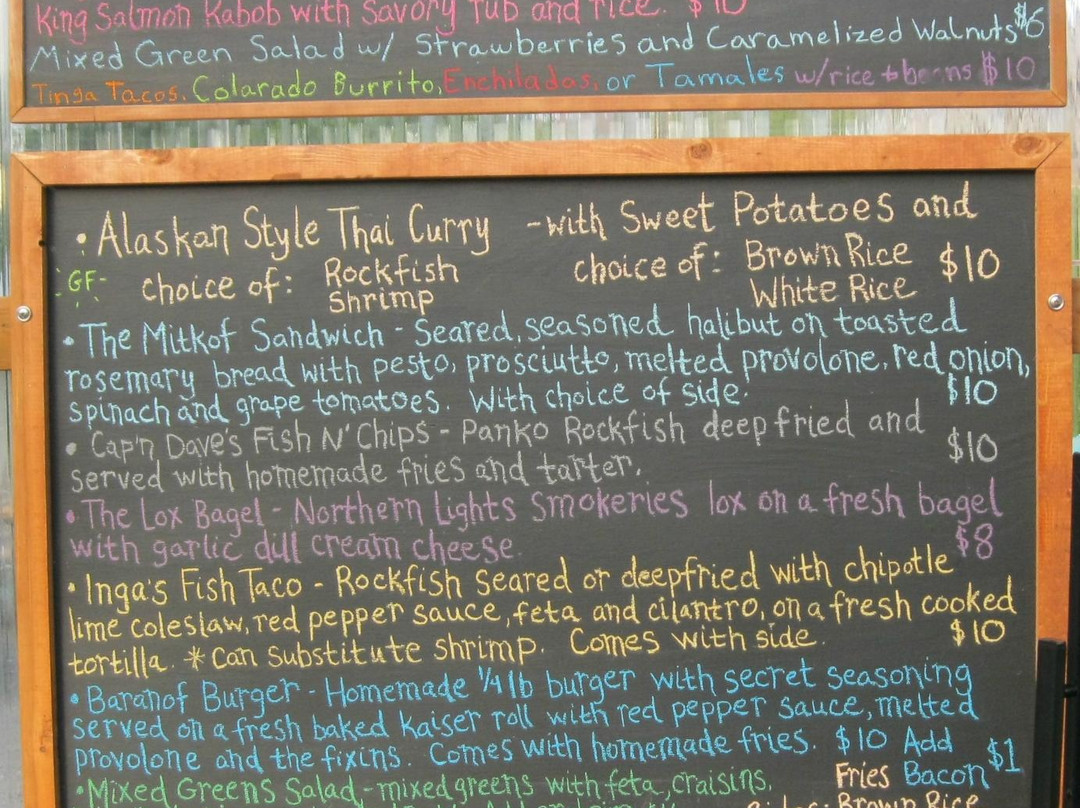 King Salmon Kabob with Savory rub and rice. $10
Mixed Green Salad w/ Strawberries and Caramelized Walnuts $6
Tinga Tacos, Colarado Burrito, Enchiladas, or Tamales w/rice + beans $10
• Alaskan Style Thai Curry - with Sweet Potatoes and
-GF- choice of: Rockfish choice of: Brown Rice $10
Shrimp White Rice
• The Mitkof Sandwich - Seared, seasoned halibut on toasted
rosemary bread with pesto, prosciutto, melted provolone, red onion,
spinach and grape tomatoes. With choice of side. $10
• Cap'n Dave's Fish N' Chips - Panko Rockfish deep fried and
served with homemade fries and tarter. $10
• The Lox Bagel - Northern Lights Smokeries lox on a fresh bagel
with garlic dill cream cheese. $8
• Inga's Fish Taco - Rockfish seared or deepfried with chipotle
lime coleslaw, red pepper sauce, feta and cilantro, on a fresh cooked
tortilla. * Can substitute shrimp. Comes with side. $10
• Baranof Burger - Homemade 1/4 lb burger with secret seasoning
served on a fresh baked kaiser roll with red pepper sauce, melted
provolone and the fixins. Comes with homemade fries. $10 Add
Bacon $1
• Mixed Greens Salad - mixed greens with feta, craisins, Fries
Brown Rice